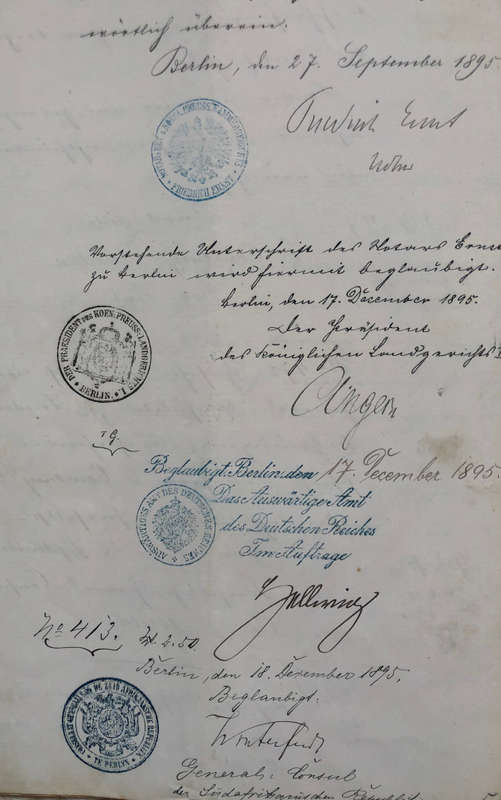 wörtlich überein.
Berlin, den 27. September 1895.
Friedrich Ernst
Notar
FRIEDRICH ERNST
Vorstehende Unterschrift des Notars Ernst
zu Berlin wird hiermit beglaubigt.
Berlin, den 17. December 1895.
Der Präsident
des Königlichen Landgerichts I
DER PRAESIDENT DES KOEN. PREUSS. LANDGERICHTS I
BERLIN.
Angern
Beglaubigt. Berlin, den 17. December 1895.
Das Auswärtige Amt
des Deutschen Reiches
Im Auftrage
AUSWÄRTIGES AMT DES DEUTSCHEN REICHES
Hellwig
No 413.
2.50.
Berlin, den 18. December 1895.
Beglaubigt:
TE BERLYN
General-Consul
der Südafrikanischen Republik